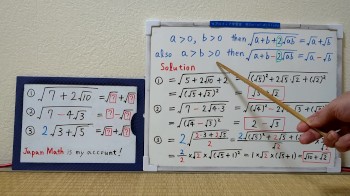 ① √(7+2√10) = √?+√?
② √(7-4√3) = √?-√?
③ 2√(3+√5) = √?+√?
Japan Math is my account!
a>0, b>0 then √(a+b+2√ab) = √a+√b
also a>b>0 then √(a+b-2√ab) = √a-√b
Solution
① = √(5+2√10+2) = √((√5)²+2√5√2+(√2)²)
= √((√5+√2)²) = √5+√2
② = √(7-2√4·3) = √((√4)²-2√4√3+
= √((√4-√3)²) = 2-√3
③ = 2√(2·3+2√5
= × √2 × √((√5+1)²) = √2 × (√5+1) = √10+√2